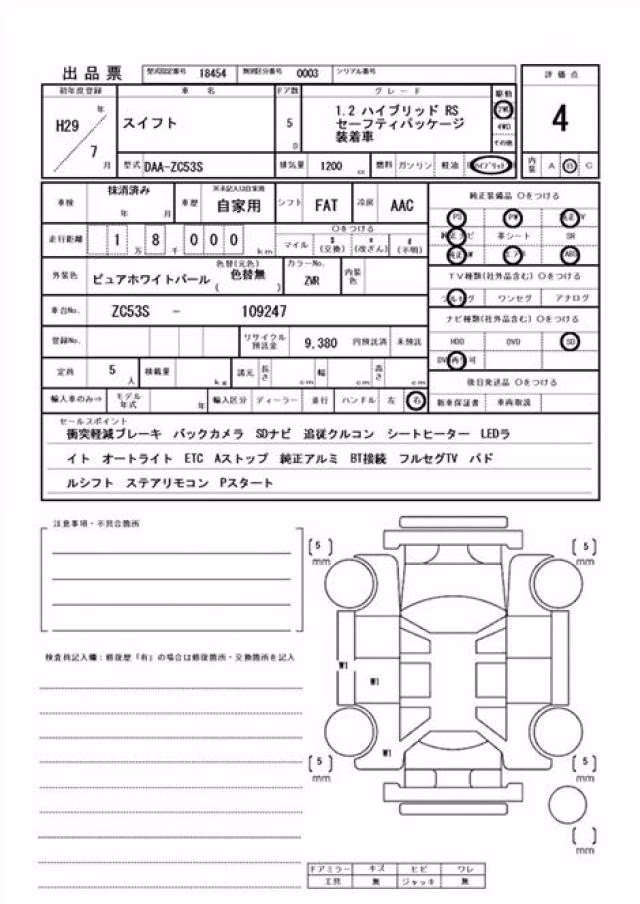 出品票 型式指定番号 18454 類別区分番号 0003 シリアル番号
初年度登録 車 名 ドア数 グレード 駆動 評価点
H29年 7月 スイフト 5 D 1.2 ハイブリッド RS
セーフティパッケージ
装着車
2WD
4WD
その他
4
型式 DAA-ZC53S 排気量 1200 cc 燃料 ガソリン 軽油 ハイブリッド 内装 A B C
車検 抹消済み 年 月 車歴 ※未記入は自家用 自家用 シフト FAT 冷房 AAC
純正装備品 ○をつける
PS PW 純正TV
純正ナビ 革シート SR
純正AW エアB ABS
走行距離 1万 8千 000 km ○をつける
マイル $(交換) *(改ざん) #(不明)
外装色 ピュアホワイトパール 色替(元色) (色替無) カラーNo. ZVR 内装色
TV種類(社外品含む) ○をつける
フルセグ ワンセグ アナログ
車台No. ZC53S - 109247
ナビ種類(社外品含む) ○をつける
HDD DVD SD
DVD再生可
登録No. リサイクル預託金 9,380 円預託済 未預託
定員 5人 積載量 kg 諸元 長さ cm 幅 cm 高さ cm
後日発送品 ○をつける
新車保証書 車両取説
輸入車のみ⇒ モデル年式 年 輸入区分 ディーラー 並行 ハンドル 左 右
セールスポイント
衝突軽減ブレーキ バックカメラ SDナビ 追従クルコン シートヒーター LEDラ
イト オートライト ETC Aストップ 純正アルミ BT接続 フルセグTV パド
ルシフト ステアリモコン Pスタート
注意事項・不具合箇所
検査員記入欄:修復歴「有」の場合は修復箇所・交換箇所を記入
[5] mm [5] mm
W1
W1
W1
[5] mm [5] mm
[ ] mm
ドアミラー キズ ヒビ ワレ
工具 無 ジャッキ 無